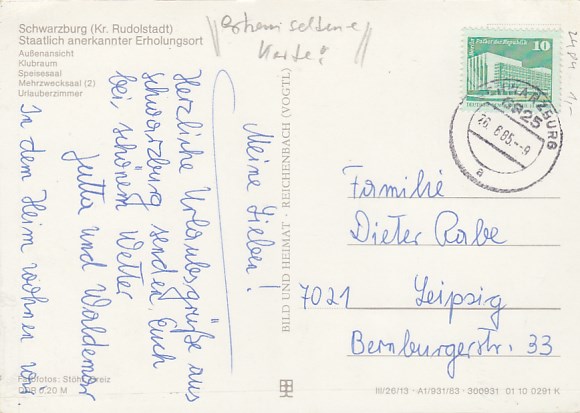 Schwarzburg (Kr. Rudolstadt)
Staatlich anerkannter Erholungsort
Außenansicht
Klubraum
Speisesaal
Mehrzwecksaal (2)
Urlauberzimmer
seltene
Karte?
Meine Lieben!
Herzliche Urlaubsgrüße aus
Schwarzburg senden Euch
bei schönem Wetter
Jutta und Waldemar
In dem Heim wohnen wir
Farbfotos: Stöhr, Greiz
DDR 0,20 M
BILD UND HEIMAT · REICHENBACH (VOGTL)
Berlin, Palast der Republik
10
SCHWARZBURG
6825
26. 6. 85. -- 9
a
Familie
Dieter Rabe
7021 Leipzig
Bernburgerstr. 33
III/26/13 · A1/931/83 · 300931 01 10 0291 K